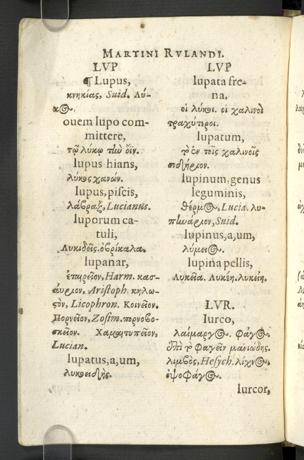 MARTINI RVLANDI.
LVP
¶ Lupus,
κνηκίας, Suid. Λύ-
κος.
ouem lupo com-
mittere,
τῷ λύκῳ τὴν ὄϊν.
lupus hians,
λύκος χανών.
lupus, piscis,
λάβραξ, Lucianus.
luporum ca-
tuli,
Λυκιδεῖς. ὀβρίκαλα.
lupanar,
ἑταιρεῖον, Harm. κασ-
αύριον. Aristoph.
Licophron. Κοινεῖον.
Πορνεῖον, Zosim. πορνοβο-
σκεῖον. Χαμαιτυπεῖον,
Lucian.
lupatus, a, um,
λυκοειδής.
LVP
lupata fre-
na,
οἱ λύκοι. οἱ χαλινοὶ
τραχύτεροι.
lupatum,
τὸ ἐν τοῖς χαλινοῖς
σιδήριον.
lupinum, genus
leguminis,
θέρμος, Lucia. λυ-
Suid.
lupinus, a, um,
λύκειος.
lupina pellis,
Λυκεία. Λυκέη. λυκέη.
LVR.
lurco,
λαίμαργος. Φάγος.
ἀπὸ τοῦ φαγεῖν
Hesych. λίχνος.
ὀψοφάγος.
lurcor,